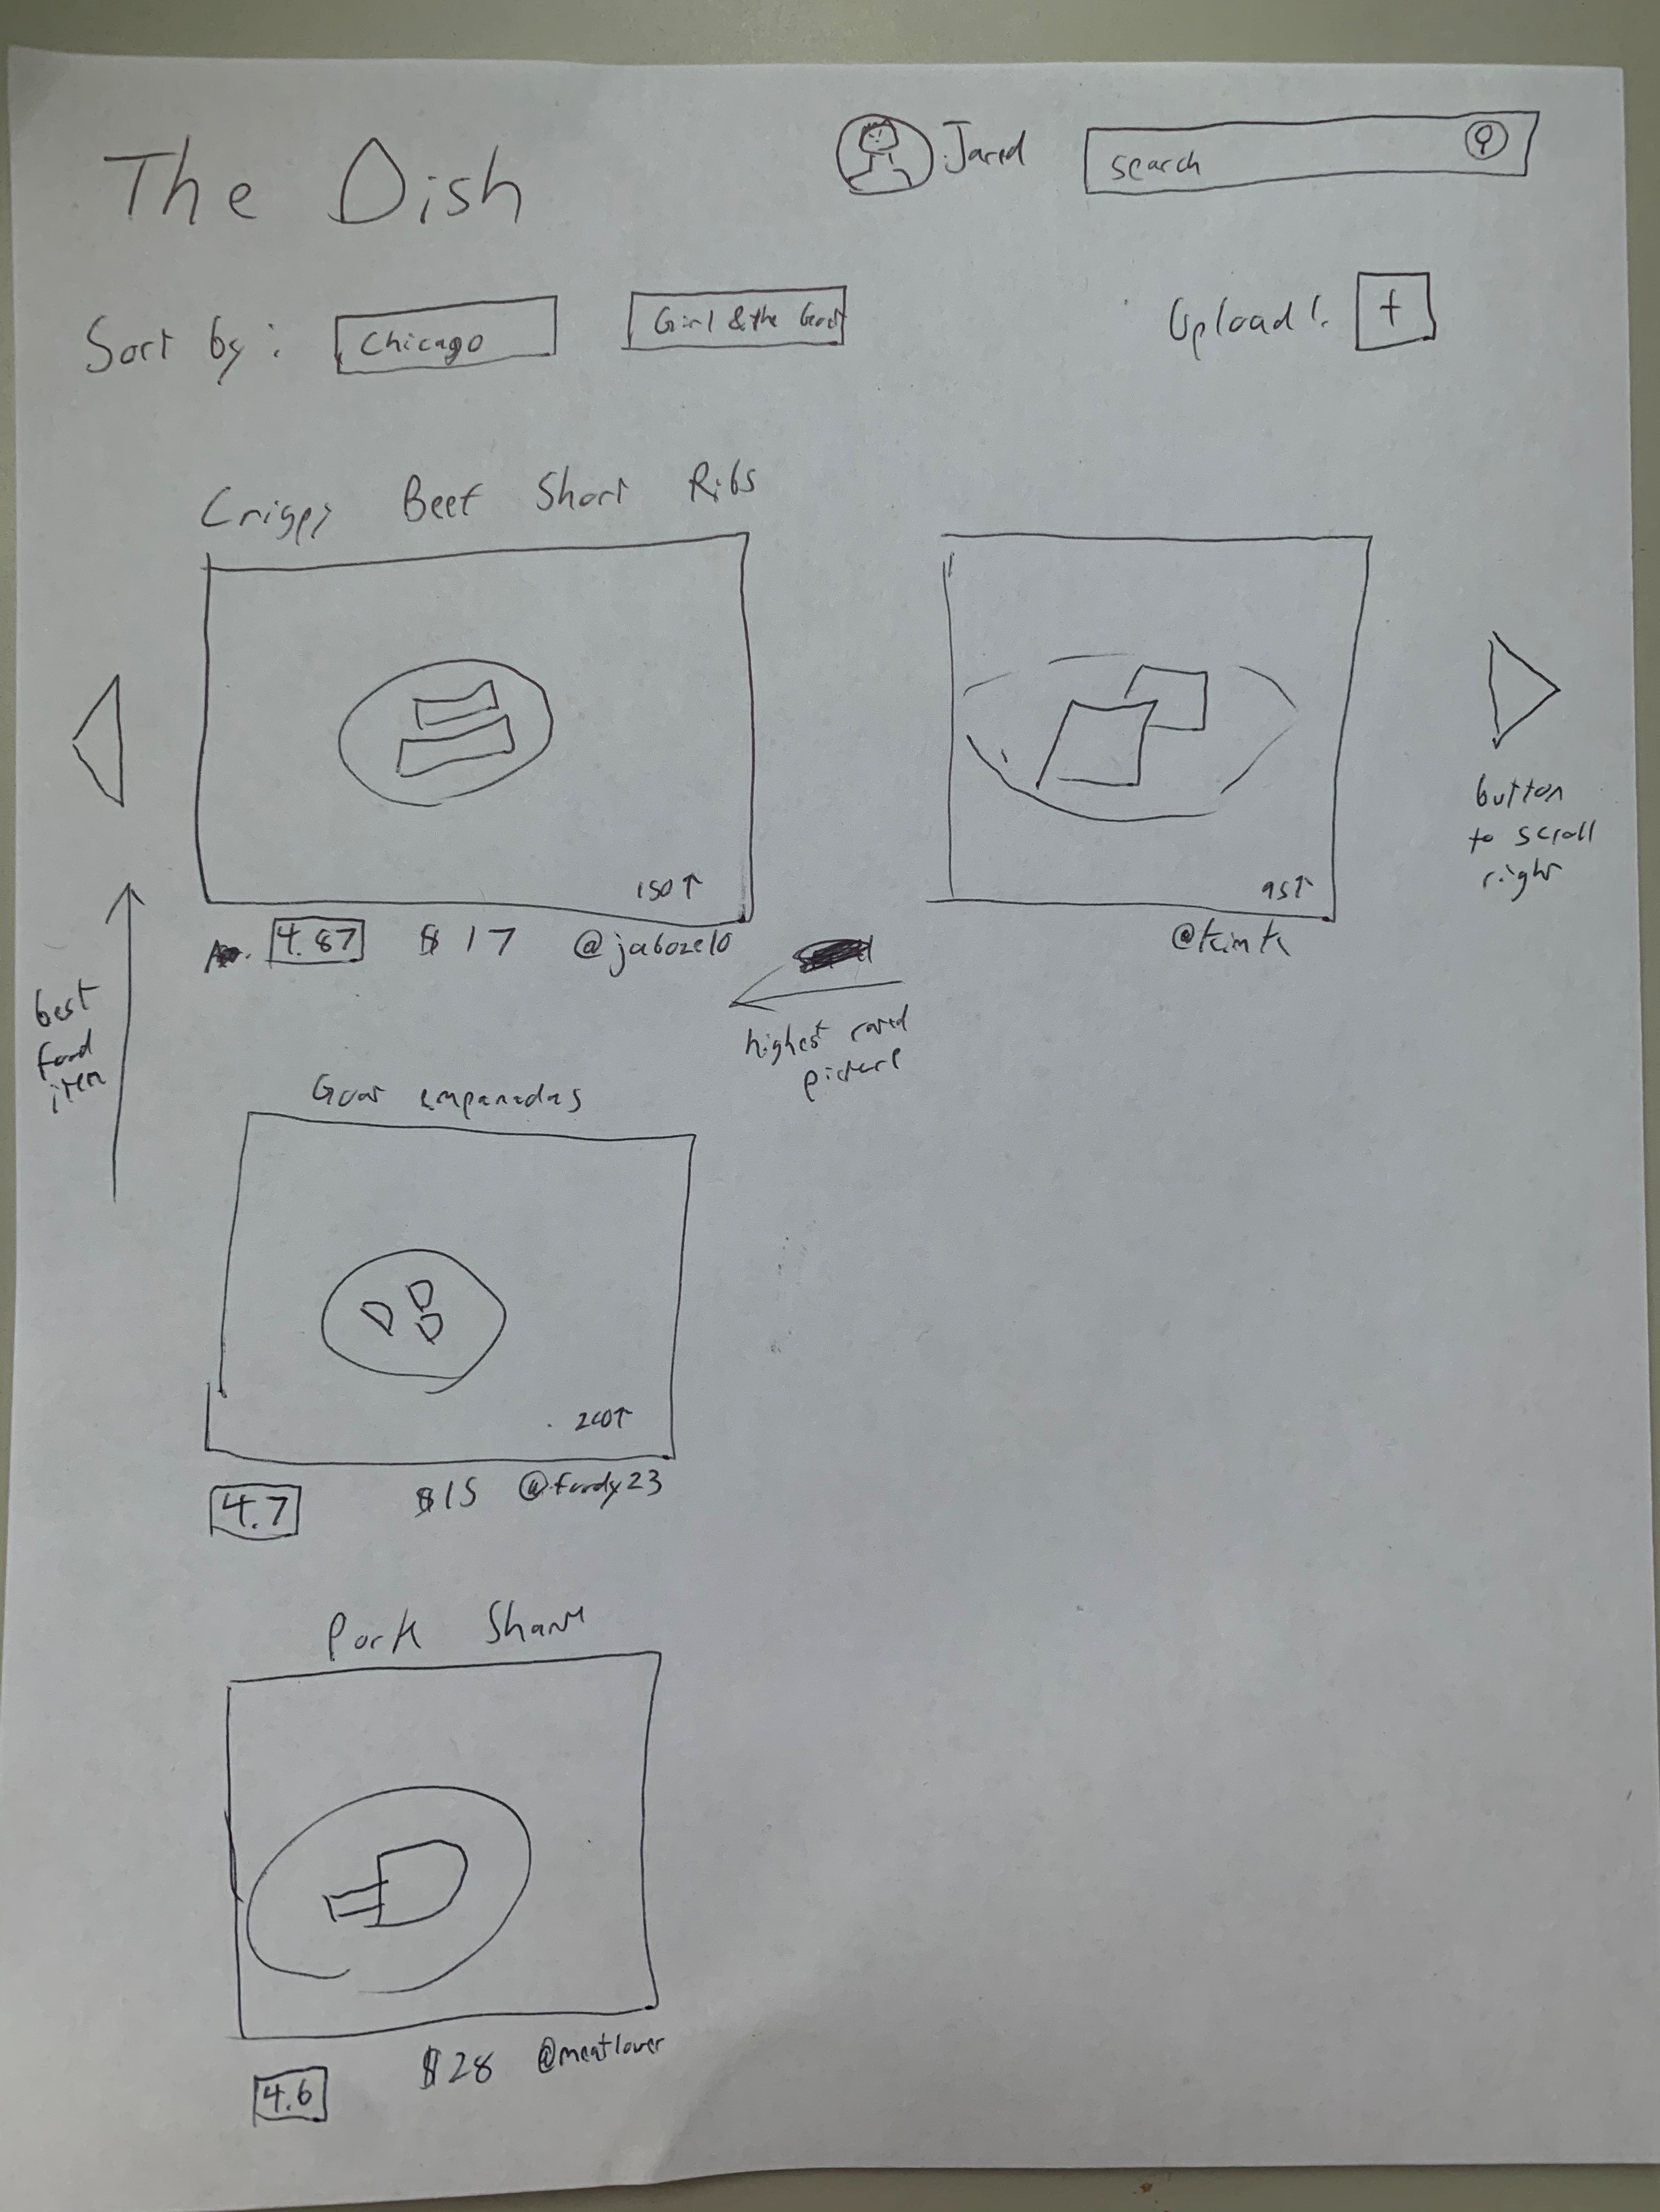 The Dish
Jared
search
Sort by:
Chicago
Girl & the Goat
Upload!
+
Crispy Beef Short Ribs
150↑
95↑
button
to scroll
right
4.87 $17 @jaboze10
@kimk
best
food
item
highest rated
picture
Goat empanadas
200↑
4.7 $15 @foody23
Pork Shank
4.6 $28 @meatlover